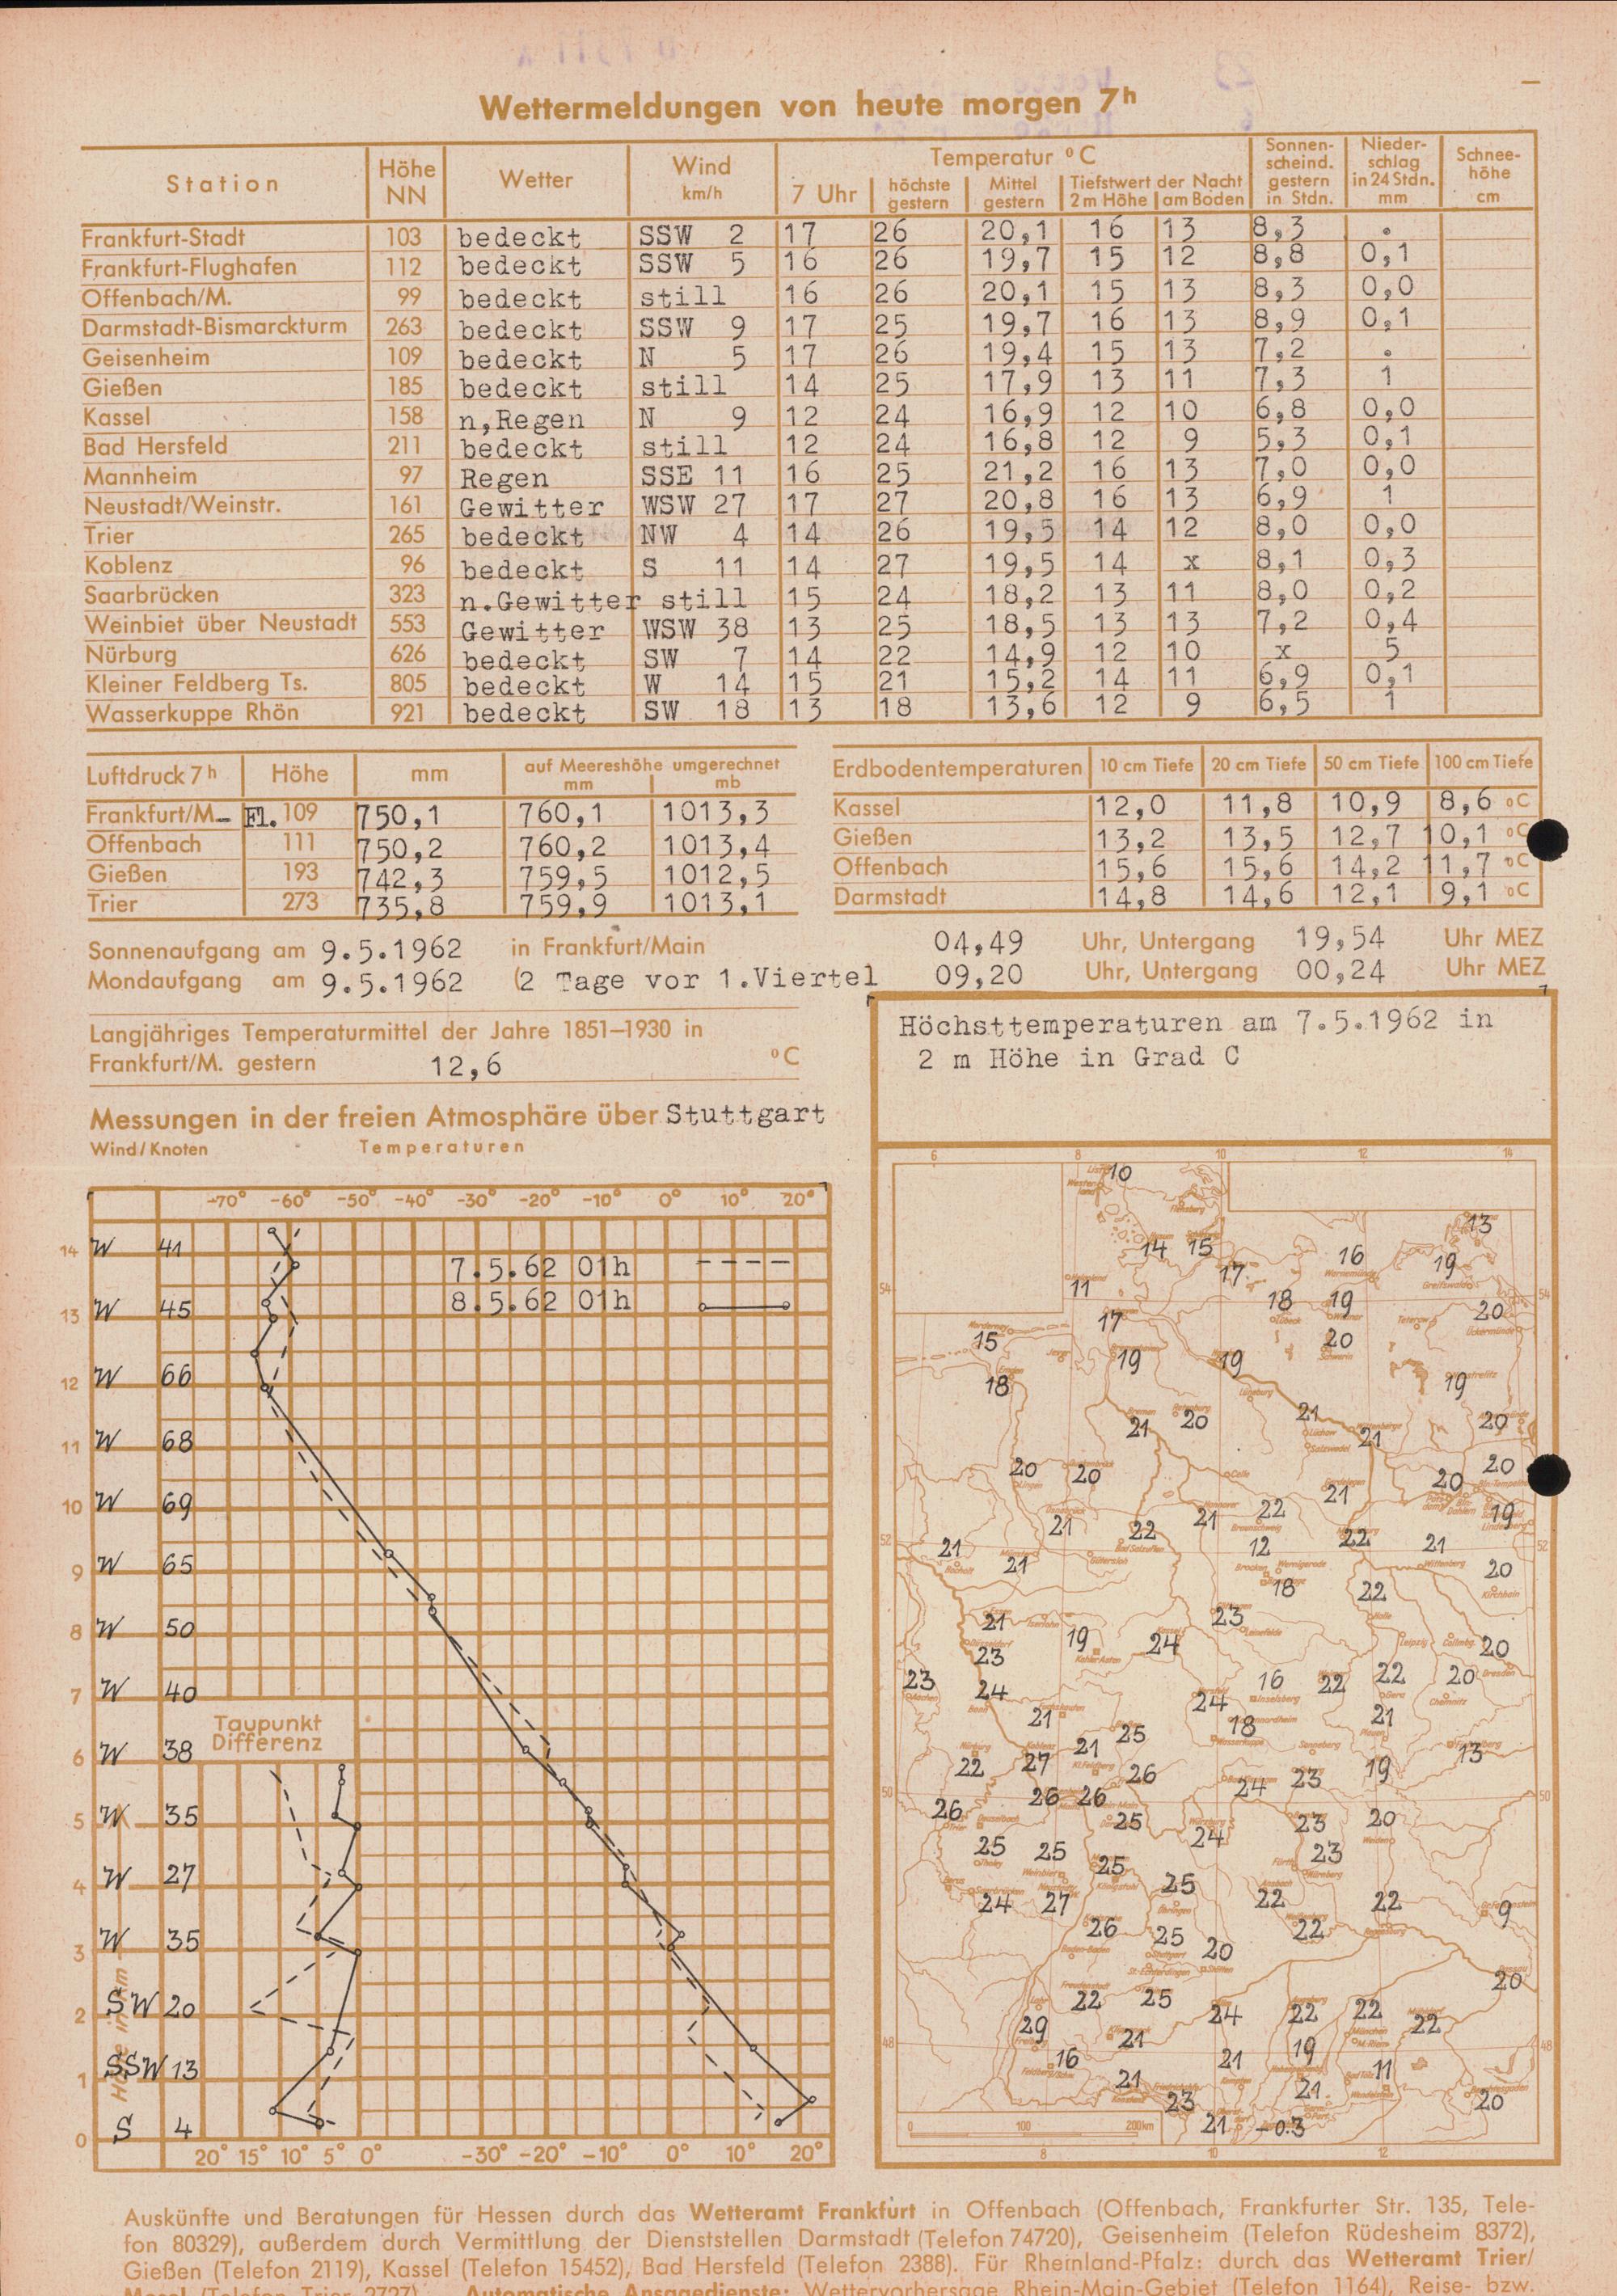 Wettermeldungen von heute morgen 7h
Station Höhe NN Wetter Wind km/h Temperatur °C Sonnen-scheind. gestern in Stdn. Nieder-schlag in 24 Stdn. mm Schnee-höhe cm
7 Uhr höchste gestern Mittel gestern Tiefstwert der Nacht 2 m Höhe am Boden
Frankfurt-Stadt 103 bedeckt SSW 2 17 26 20,1 16 13 8,3 .
Frankfurt-Flughafen 112 bedeckt SSW 5 16 26 19,7 15 12 8,8 0,1
Offenbach/M. 99 bedeckt still 16 26 20,1 15 13 8,3 0,0
Darmstadt-Bismarckturm 263 bedeckt SSW 9 17 25 19,7 16 13 8,9 0,1
Geisenheim 109 bedeckt N 5 17 26 19,4 15 13 7,2 .
Gießen 185 bedeckt still 14 25 17,9 13 11 7,3 1
Kassel 158 n,Regen N 9 12 24 16,9 12 10 6,8 0,0
Bad Hersfeld 211 bedeckt still 12 24 16,8 12 9 5,3 0,1
Mannheim 97 Regen SSE 11 16 25 21,2 16 13 7,0 0,0
Neustadt/Weinstr. 161 Gewitter WSW 27 17 27 20,8 16 13 6,9 1
Trier 265 bedeckt NW 4 14 26 19,5 14 12 8,0 0,0
Koblenz 96 bedeckt S 11 14 27 19,5 14 x 8,1 0,3
Saarbrücken 323 n.Gewitter still 15 24 18,2 13 11 8,0 0,2
Weinbiet über Neustadt 553 Gewitter WSW 38 13 25 18,5 13 13 7,2 0,4
Nürburg 626 bedeckt SW 7 14 22 14,9 12 10 x 5
Kleiner Feldberg Ts. 805 bedeckt W 14 15 21 15,2 14 11 6,9 0,1
Wasserkuppe Rhön 921 bedeckt SW 18 13 18 13,6 12 9 6,5 1
Luftdruck 7h Höhe mm auf Meereshöhe umgerechnet mm mb
Frankfurt/M- Fl. 109 750,1 760,1 1013,3
Offenbach 111 750,2 760,2 1013,4
Gießen 193 742,3 759,5 1012,5
Trier 273 735,8 759,9 1013,1
Erdbodentemperaturen 10 cm Tiefe 20 cm Tiefe 50 cm Tiefe 100 cm Tiefe
Kassel 12,0 11,8 10,9 8,6 °C
Gießen 13,2 13,5 12,7 10,1 °C
Offenbach 15,6 15,6 14,2 11,7 °C
Darmstadt 14,8 14,6 12,1 9,1 °C
Sonnenaufgang am 9.5.1962 in Frankfurt/Main 04,49 Uhr, Untergang 19,54 Uhr MEZ
Mondaufgang am 9.5.1962 (2 Tage vor 1.Viertel 09,20 Uhr, Untergang 00,24 Uhr MEZ
Langjähriges Temperaturmittel der Jahre 1851–1930 in
Frankfurt/M. gestern 12,6 °C
Messungen in der freien Atmosphäre über Stuttgart
Wind/Knoten Temperaturen
-70° -60° -50° -40° -30° -20° -10° 0° 10° 20°
14 W 41
7.5.62 01h
8.5.62 01h
13 W 45
12 W 66
11 W 68
10 W 69
9 W 65
8 W 50
7 W 40
Taupunkt
Differenz
6 W 38
5 W 35
4 W 27
3 W 35
2 SW 20
1 SSW 13
0 S 4
Höhe in km
20° 15° 10° 5° 0° -30° -20° -10° 0° 10° 20°
Höchsttemperaturen am 7.5.1962 in
2 m Höhe in Grad C
6 8 10 12 14
10
13
14 15 16 19
17
11
54 18 19 20 54
17
15 20
19 19
18 19
21 20 21 21 20
20 20 21 20 20
21 22 21 22 19
52 21 21 12 22 21 52
18 22 20
21 23
19 24 20
23
23 24 16 22 22 20
24
21 25 18 21
22 27 21 26 13
24 23 19
50 26 26 26 50
25 24 23 20
25 25 25 23
24 27 25 22 22 9
26 25 20 22
22 25 24 22 22 22 20
29 21 19
48 16 21 11 48
21 21
23 20
21 -0.3
0 100 200km
8 10 12
Auskünfte und Beratungen für Hessen durch das Wetteramt Frankfurt in Offenbach (Offenbach, Frankfurter Str. 135, Tele-
fon 80329), außerdem durch Vermittlung der Dienststellen Darmstadt (Telefon 74720), Geisenheim (Telefon Rüdesheim 8372),
Gießen (Telefon 2119), Kassel (Telefon 15452), Bad Hersfeld (Telefon 2388). Für Rheinland-Pfalz: durch das Wetteramt Trier/
Mosel (Telefon Trier 2727). Automatische Ansagedienste: Wettervorhersage Rhein-Main-Gebiet (Telefon 1164), Reise- bzw.